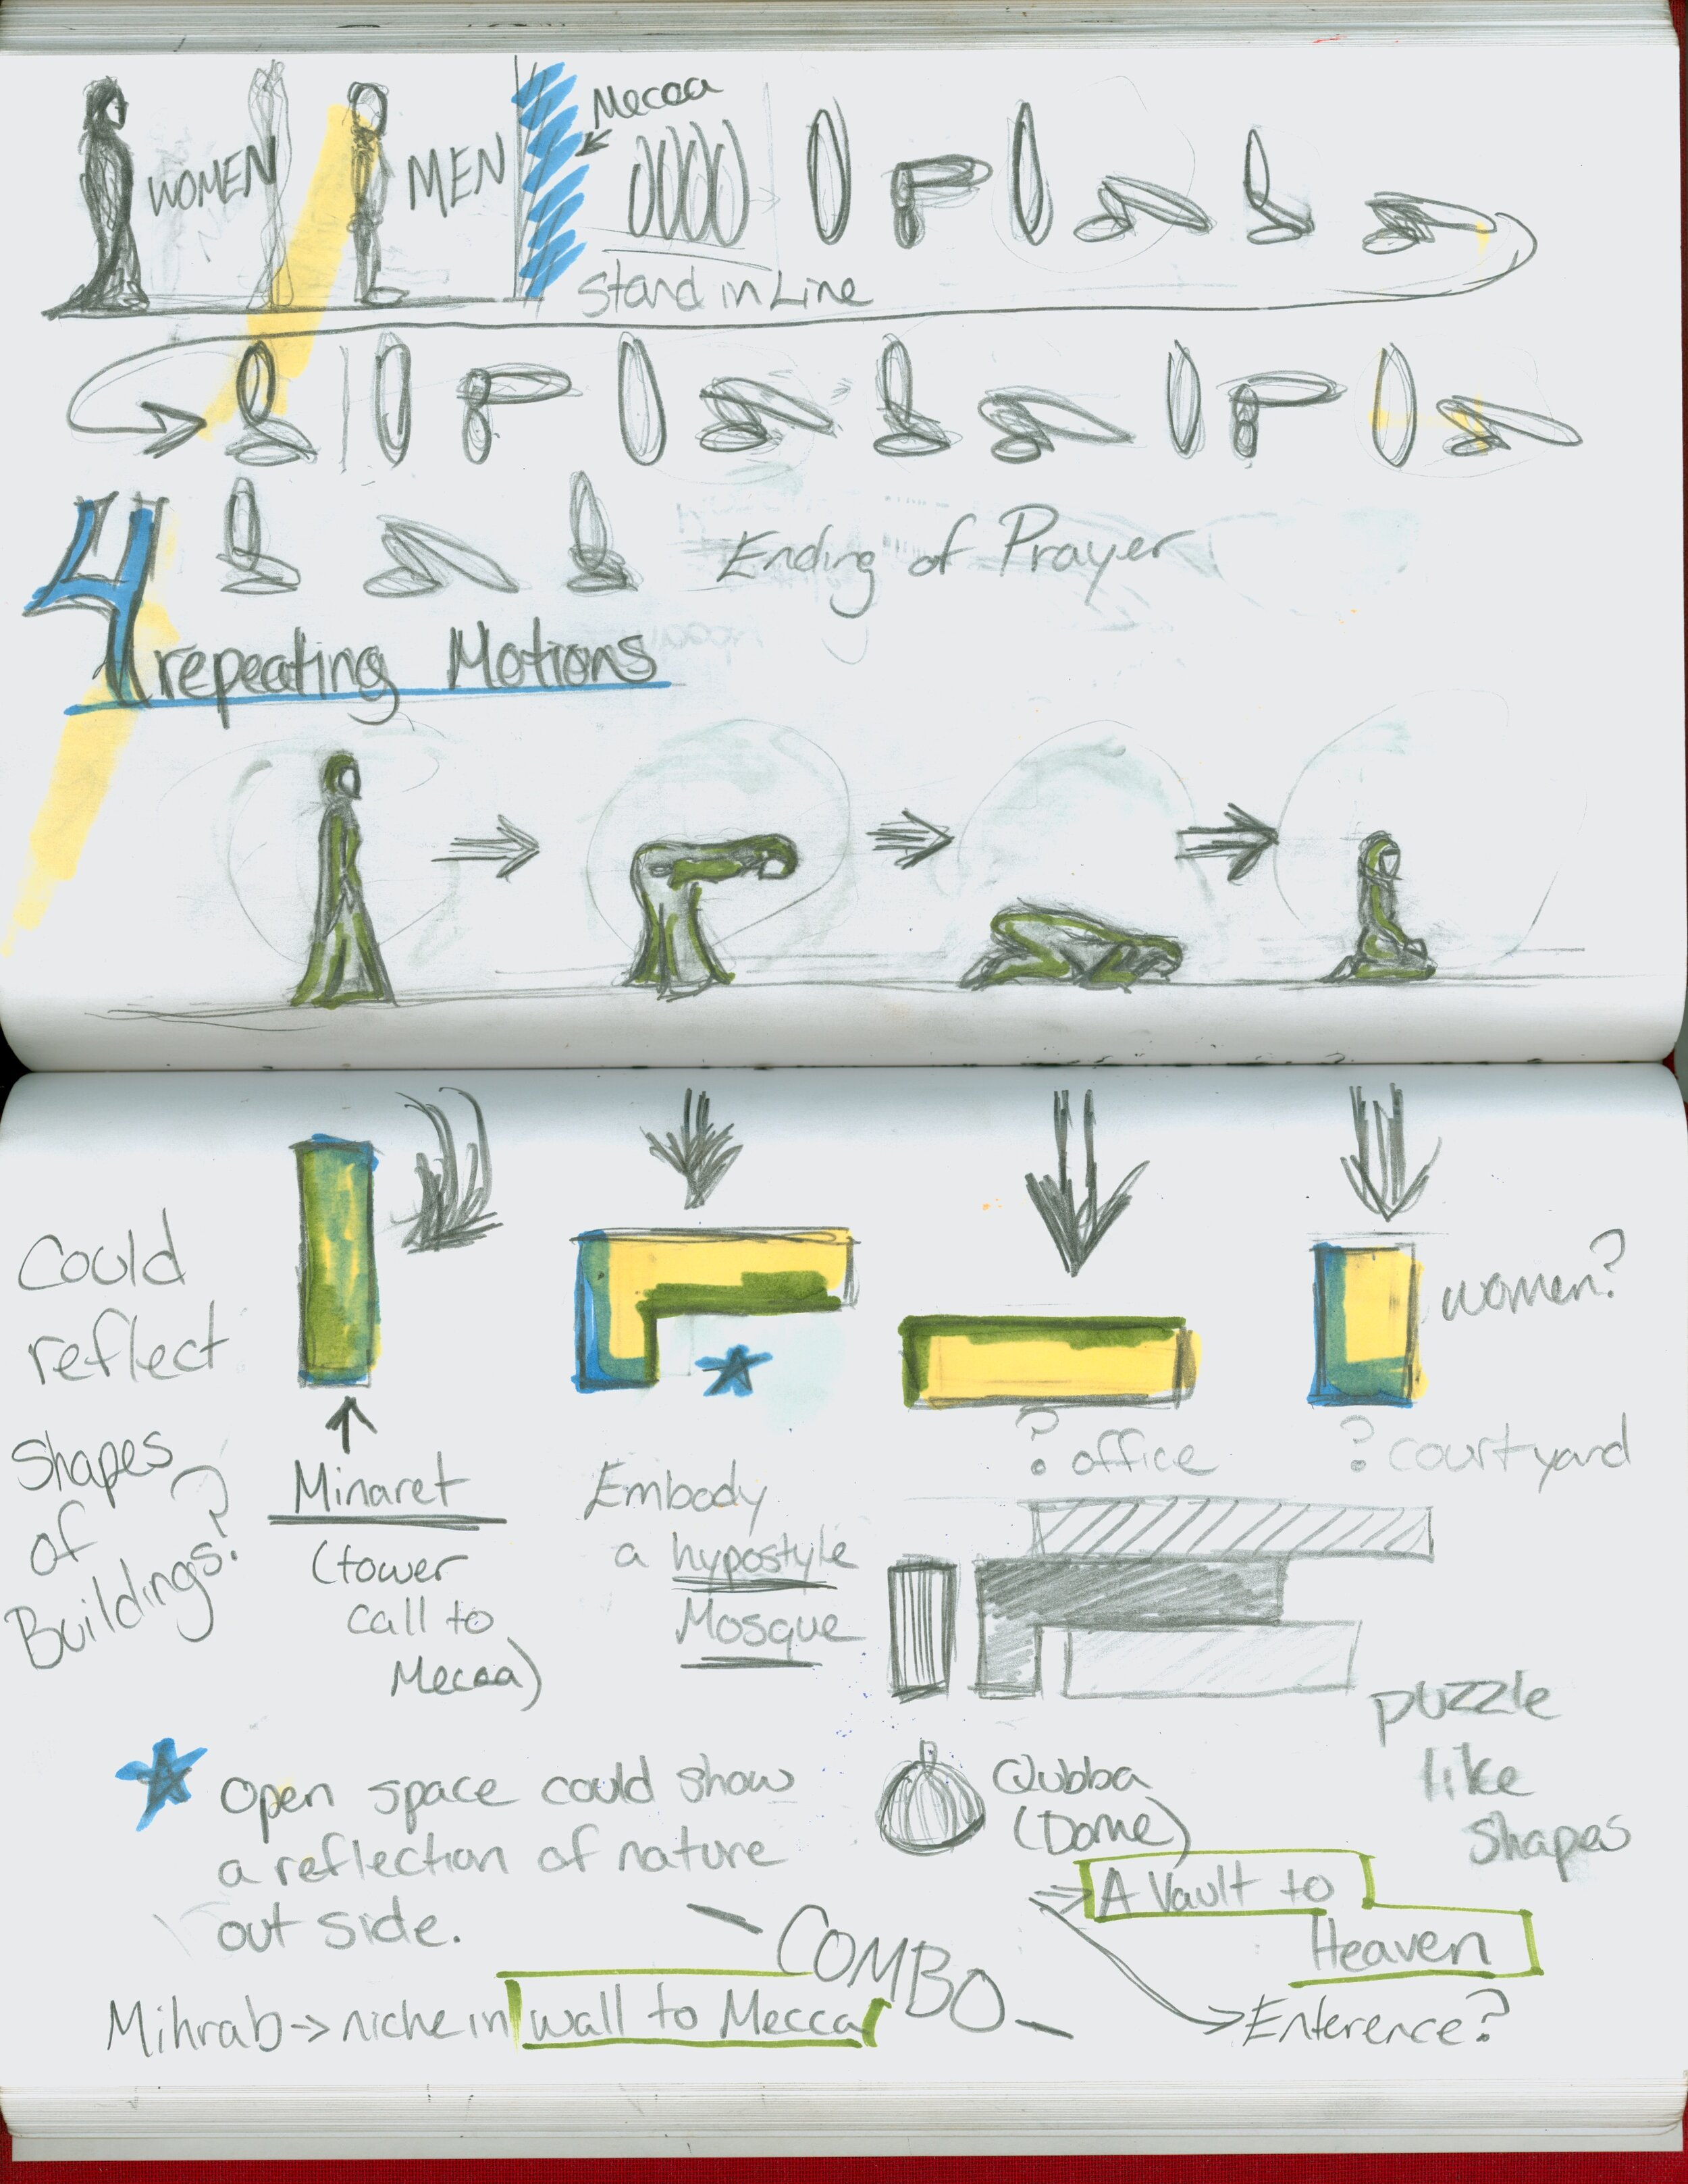 WOMEN
MEN
Mecaa
Stand in Line
Ending of Prayer
4
repeating Motions
Could
reflect
Shapes
of
Buildings?
women?
Minaret
(tower
call to
Mecaa)
Embody
a hypostyle
Mosque
? office
? courtyard
puzzle
like
shapes
Open space could show
a reflection of nature
out side.
Qubba
(Dome)
A Vault to
Heaven
COMBO
Enterence?
Mihrab → niche in wall to Mecca